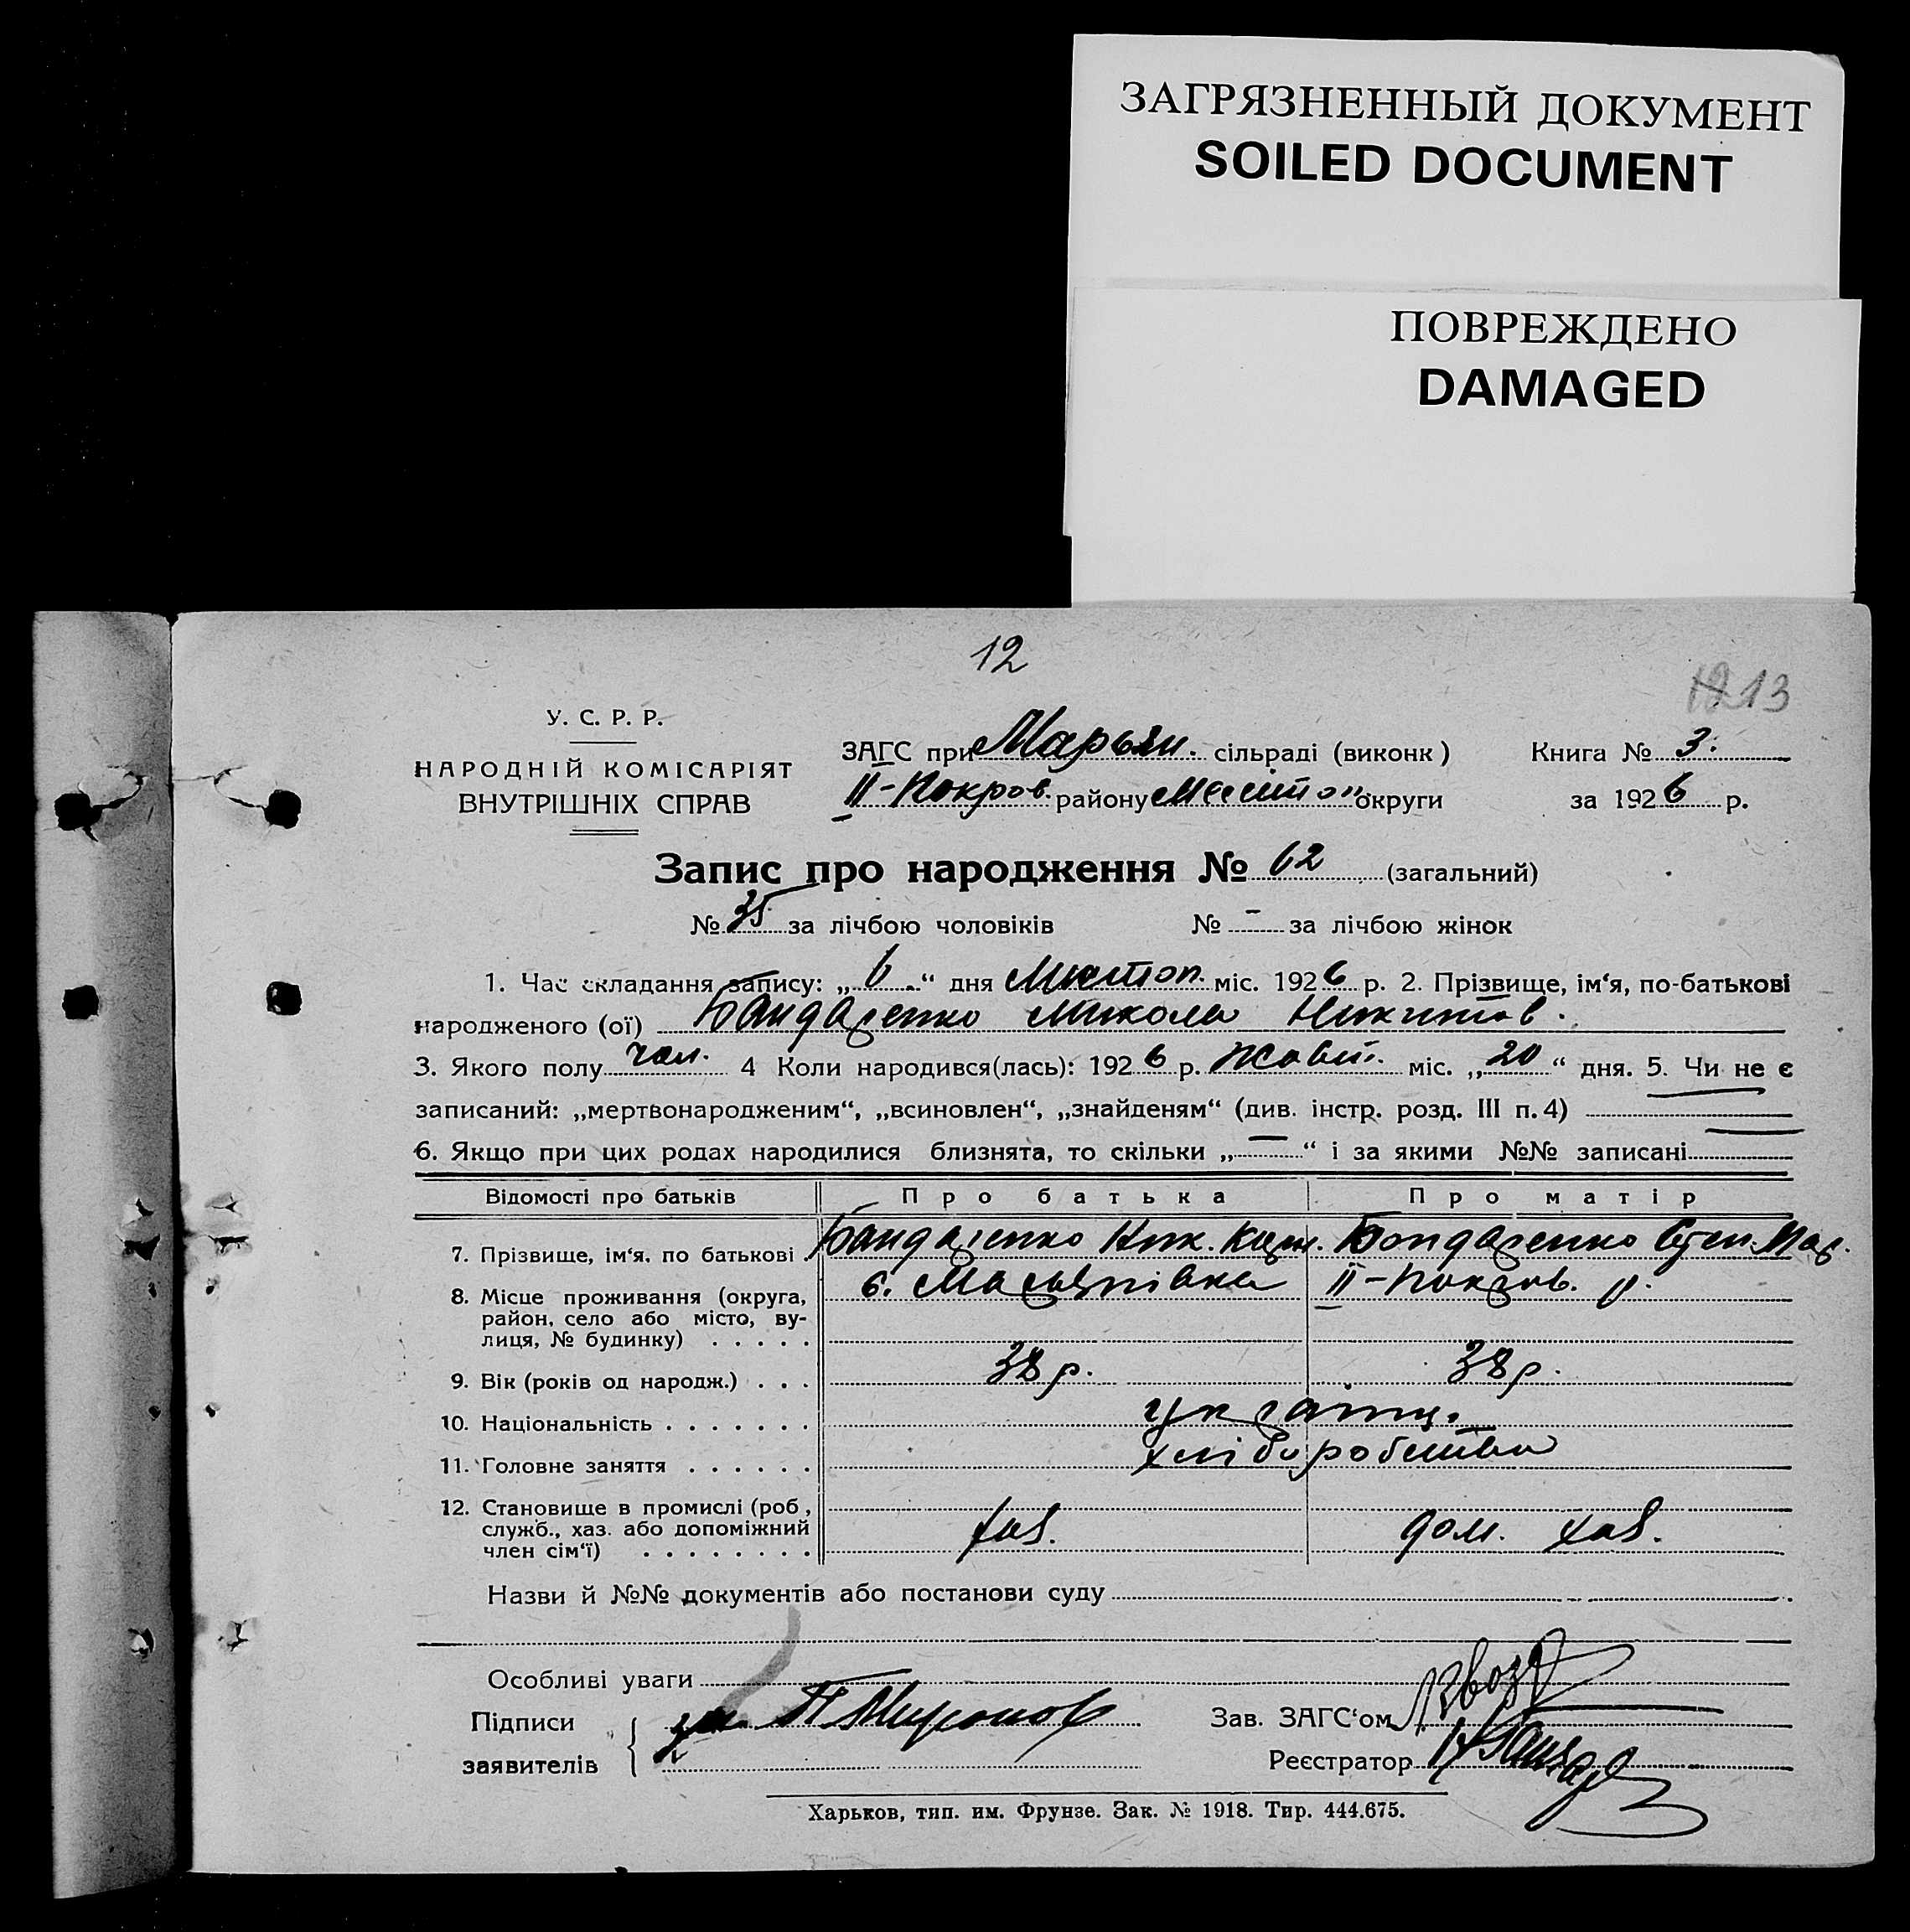 ЗАГРЯЗНЕННЫЙ ДОКУМЕНТ
SOILED DOCUMENT
ПОВРЕЖДЕНО
DAMAGED
12
12 13
У. С. Р. Р.
НАРОДНІЙ КОМІСАРІЯТ
ВНУТРІШНІХ СПРАВ
ЗАГС при Марьян. сільраді (виконк) Книга № 3.
II-Покров. району округи за 1926 р.
Запис про народження № 62 (загальний)
№ 35 за лічбою чоловіків № - за лічбою жінок
1. Час складання запису: „6“ дня Листоп. міс. 1926 р. 2. Прізвище, ім‘я, по-батькові
народженого (ої) Бандаренко Микола Никитов.
3. Якого полу чол. 4 Коли народився(лась): 1926 р. Жовт. міс. „20“ дня. 5. Чи не є
записаний: „мертвонародженим“, „всиновлен“, „знайденям“ (див. інстр. розд. III п. 4) —
6. Якщо при цих родах народилися близнята, то скільки „—“ і за якими №№ записані —
Відомості про батьків Про батька Про матір
7. Прізвище, ім‘я, по батькові . Бандаренко Ник. Бондаренко Мар.
8. Місце проживання (округа, с. Марьянівка II-Покров. р.
район, село або місто, ву-
лиця, № будинку) . . . . .
9. Вік (років од народж.) . . . 38 р. 38 р.
10. Національність . . . . . . . україн.
11. Головне заняття . . . . . . хліборобство
12. Становище в промислі (роб,
служб., хаз. або допоміжний хаз. дом. хаз.
член сім‘ї) . . . . . . . .
Назви й №№ документів або постанови суду
Особливі уваги
Підписи П. Миронов Зав. ЗАГС‘ом
заявителів Реєстратор
Харьков, тип. им. Фрунзе. Зак. № 1918. Тир. 444.675.